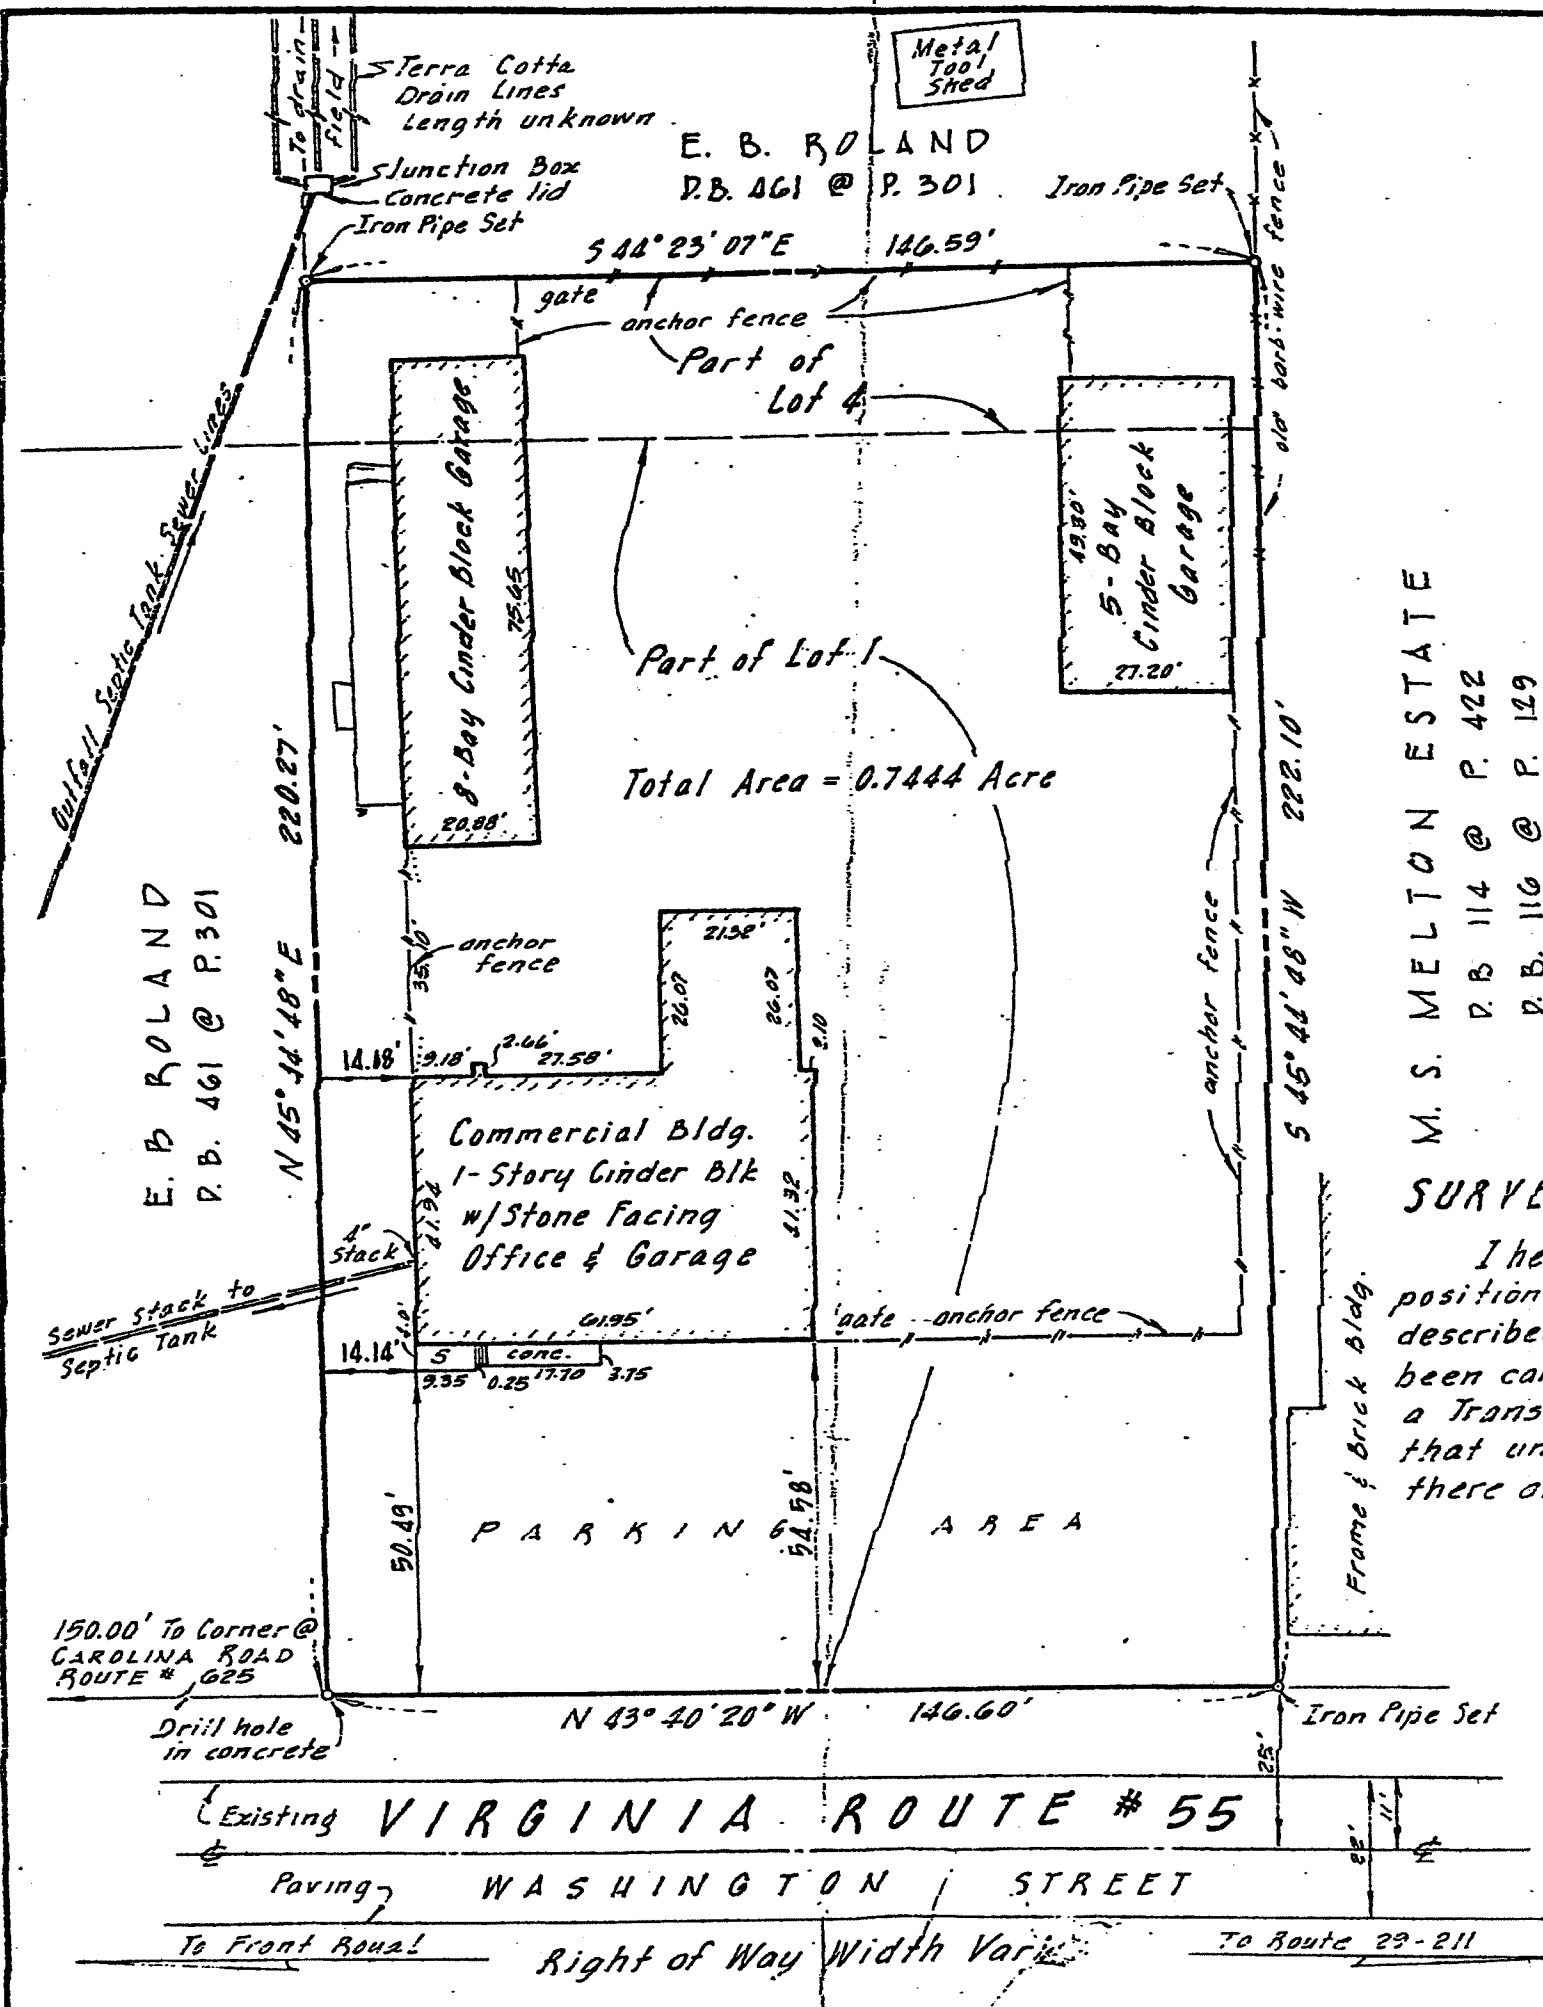 To drain
field
Terra Cotta
Drain Lines
Length unknown
Metal
Tool
Shed
E. B. ROLAND
D.B. 461 @ P. 301
Junction Box
Concrete lid
Iron Pipe Set
Iron Pipe Set
S 44° 23' 07" E 146.59'
gate
anchor fence
old barb-wire fence
Part of
Lot 4
Outfall Septic Tank Sewer Lines
8-Bay Cinder Block Garage
75.65
20.88'
5-Bay
Cinder Block
Garage
49.80'
27.20'
Part of Lot 1
Total Area = 0.7444 Acre
N 45° 44' 48" E 220.27'
E. B. ROLAND
D.B. 461 @ P. 301
S 45° 44' 48" W 222.10'
M. S. MELTON ESTATE
D. B. 114 @ P. 422
D. B. 116 @ P. 129
anchor
fence
35.10'
anchor fence
21.32'
26.07
26.07
2.10
14.18'
9.18'
2.66'
27.58'
Commercial Bldg.
1-Story Cinder Blk
w/Stone Facing
Office & Garage
41.94
41.32
61.95'
4"
Stack
Sewer Stack to
Septic Tank
gate anchor fence
14.14'
S
conc.
9.35
0.25
17.70
3.75
50.49'
54.58'
PARKING AREA
Frame & Brick Bldg.
SURVE
I he
position
describe
been ca
a Trans
that un
there a
150.00' To Corner @
CAROLINA ROAD
ROUTE # 625
Drill hole
in concrete
N 43° 40' 20" W 146.60'
Iron Pipe Set
25'
Existing
VIRGINIA ROUTE # 55
22'
11'
Paving
WASHINGTON STREET
To Front Royal
Right of Way Width Vari
To Route 29-211